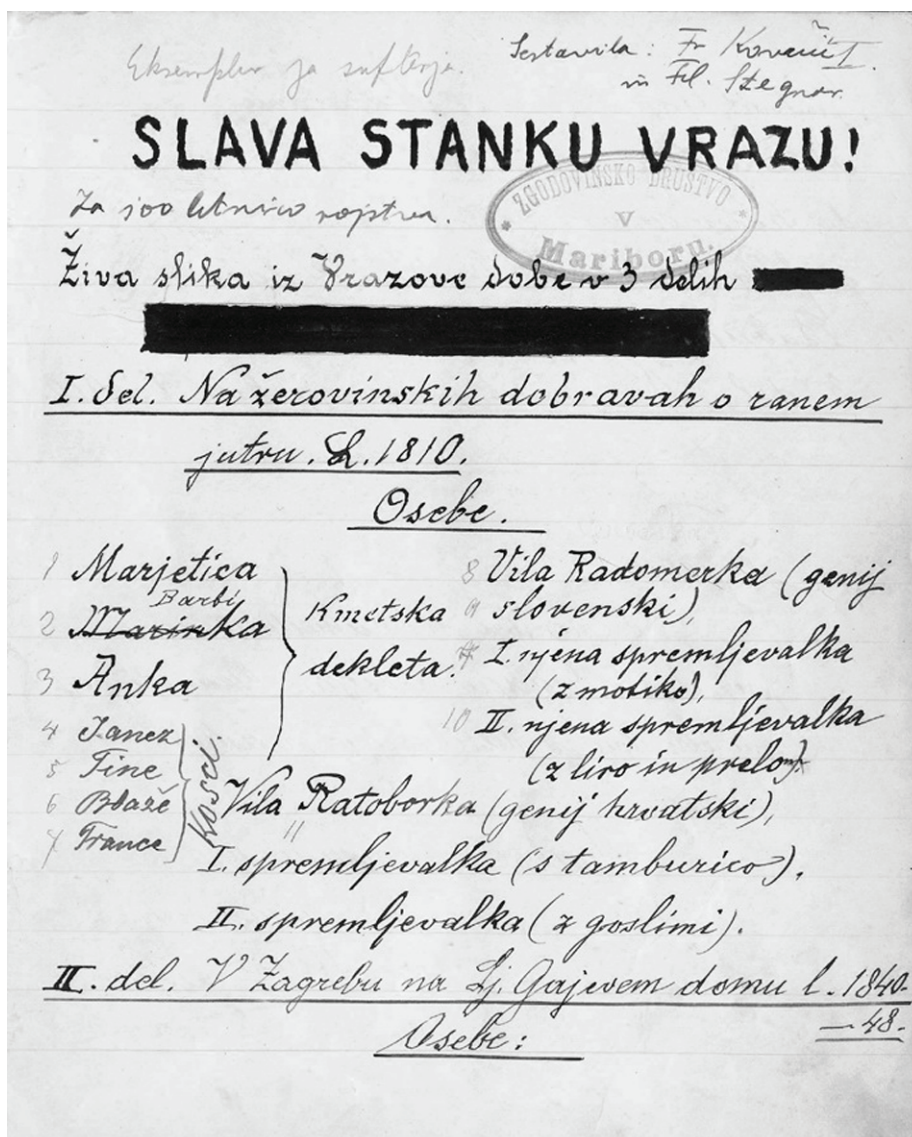 Eksempler za suflerja.
Sestavila: Fr Kovačič I.
in Fil. Stegnar.
SLAVA STANKU VRAZU!
ZGODOVINSKO DRUSTVO
V
Mariboru.
Za 100 letnico rojstva.
Živa slika iz Vrazove dobe v 3 delih
I. del. Na žerovinskih dobravah o ranem
jutru. L. 1810.
Osebe.
1 Marjetica
Barbi
2 Marinka
3 Anka
Kmetska
dekleta.
4 Janez
5 Tine
6 Blaže
7 France
Kosci.
8 Vila Radomerka (genij
9 slovenski),
I. njena spremljevalka
(z motiko),
10 II. njena spremljevalka
(z liro in prelom).
Vila Ratoborka (genij hrvatski),
11
I. spremljevalka (s tamburico).
II. spremljevalka (z goslimi).
II. del. V Zagrebu na Lj. Gajevem domu l. 1840.
—48.
Osebe: